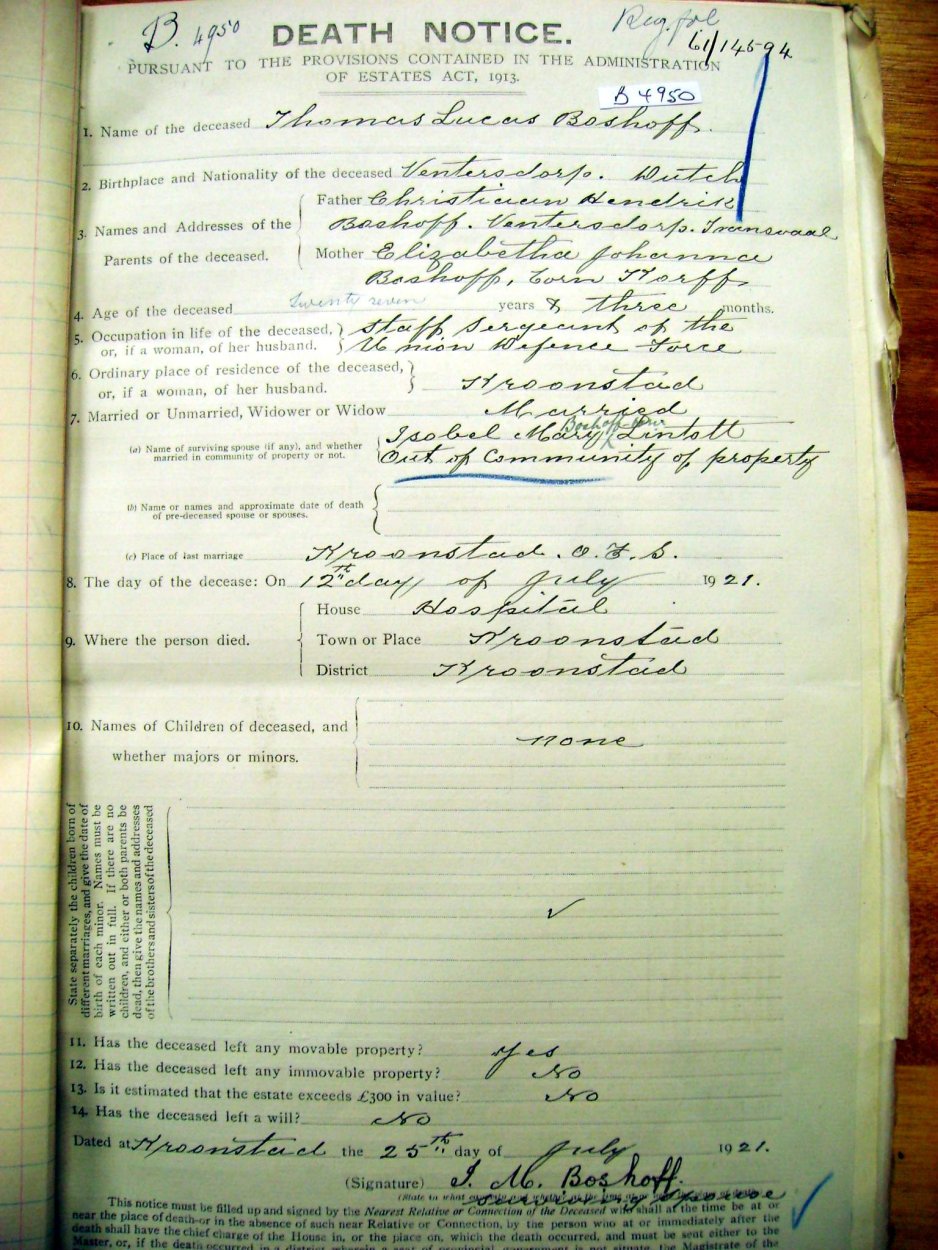 B. 4950 DEATH NOTICE. Reg. fol 61/14594
PURSUANT TO THE PROVISIONS CONTAINED IN THE ADMINISTRATION
OF ESTATES ACT, 1913.
B 4950
1. Name of the deceased Thomas Lucas Boshoff.
2. Birthplace and Nationality of the deceased Ventersdorp. Dutch
3. Names and Addresses of the Parents of the deceased.
Father Christiaan Hendrik
Boshoff. Ventersdorp. Transvaal
Mother Elizabetha Johanna
Boshoff, born Korff
4. Age of the deceased twenty seven years & three months.
5. Occupation in life of the deceased, Staff Sergeant of the
or, if a woman, of her husband. Union Defence Force
6. Ordinary place of residence of the deceased,
or, if a woman, of her husband. Kroonstad
7. Married or Unmarried, Widower or Widow Married
(a) Name of surviving spouse (if any), and whether married in community of property or not.
Isobel Mary Boshoff Lintott
Out of Community of property
(b) Name or names and approximate date of death
of pre-deceased spouse or spouses.
(c) Place of last marriage Kroonstad. O.F.S.
8. The day of the decease: On 12th day of July 1921.
House Hospital
9. Where the person died. Town or Place Kroonstad
District Kroonstad
10. Names of Children of deceased, and
none
whether majors or minors.
State separately the children born of
different marriages, and give the date of
birth of each minor. Names must be
written out in full. If there are no
children, and either or both parents be
dead, then give the names and addresses
of the brothers and sisters of the deceased
11. Has the deceased left any movable property? Yes
12. Has the deceased left any immovable property? No
13. Is it estimated that the estate exceeds £300 in value? No
14. Has the deceased left a will? No
Dated at Kroonstad the 25th day of July 1921.
(Signature) I. M. Boshoff.
Surviving Spouse
This notice must be filled up and signed by the Nearest Relative or Connection of the Deceased who shall at the time be at or
near the place of death—or in the absence of such near Relative or Connection, by the person who at or immediately after the
death shall have the chief charge of the House in, or the place on, which the death occurred, and must be sent either to the
Master, or, if the death occurred in a district wherein a seat of provincial government is not situate, the Magistrate of the